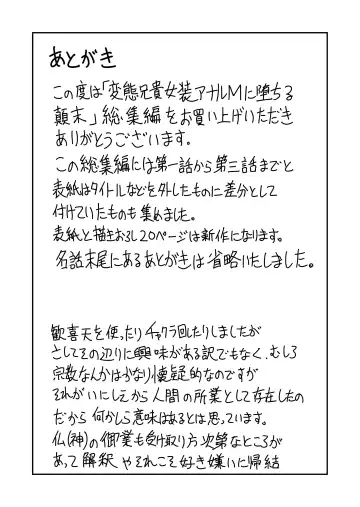 あとがき
この度は「変態兄貴女装アナルMに堕ちる
顛末」総集編をお買い上げいただき
ありがとうございます。
この総集編には第一話から第三話までと
表紙はタイトルなどを外したものに差分として
付けていたものも集めました。
表紙と描きおろし20ページは新作になります。
各話末尾にあるあとがきは省略いたしました。
歓喜天を使ったりチャクラ回したりしましたが
さしてその辺りに興味がある訳でもなく、むしろ
宗教なんかはかなり懐疑的なのですが
それがいにしえから人間の所業として存在したの
だから何かしら意味はあるとは思っています。
仏(神)の御業も受け取り方次第なところが
あって解釈やそれこそ好き嫌いに帰結